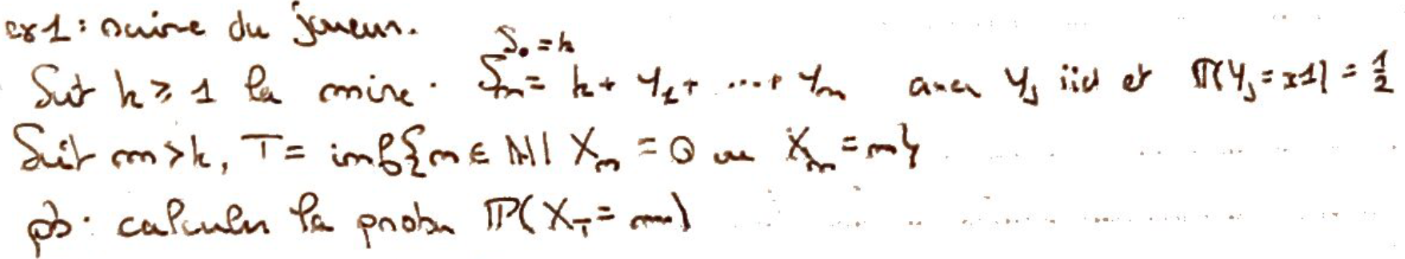 ex1: ruine du joueur.
S₀ = k
Soit k ≥ 1 la mise. Sₙ = k + Y₁ + ... + Yₙ avec Yⱼ iid et ℙ(Yⱼ = ±1) = 1/2
Soit m > k, T = inf{n ∈ ℕ | Xₙ = 0 ou Xₙ = m}
pb: calculer la proba ℙ(X_T = m)